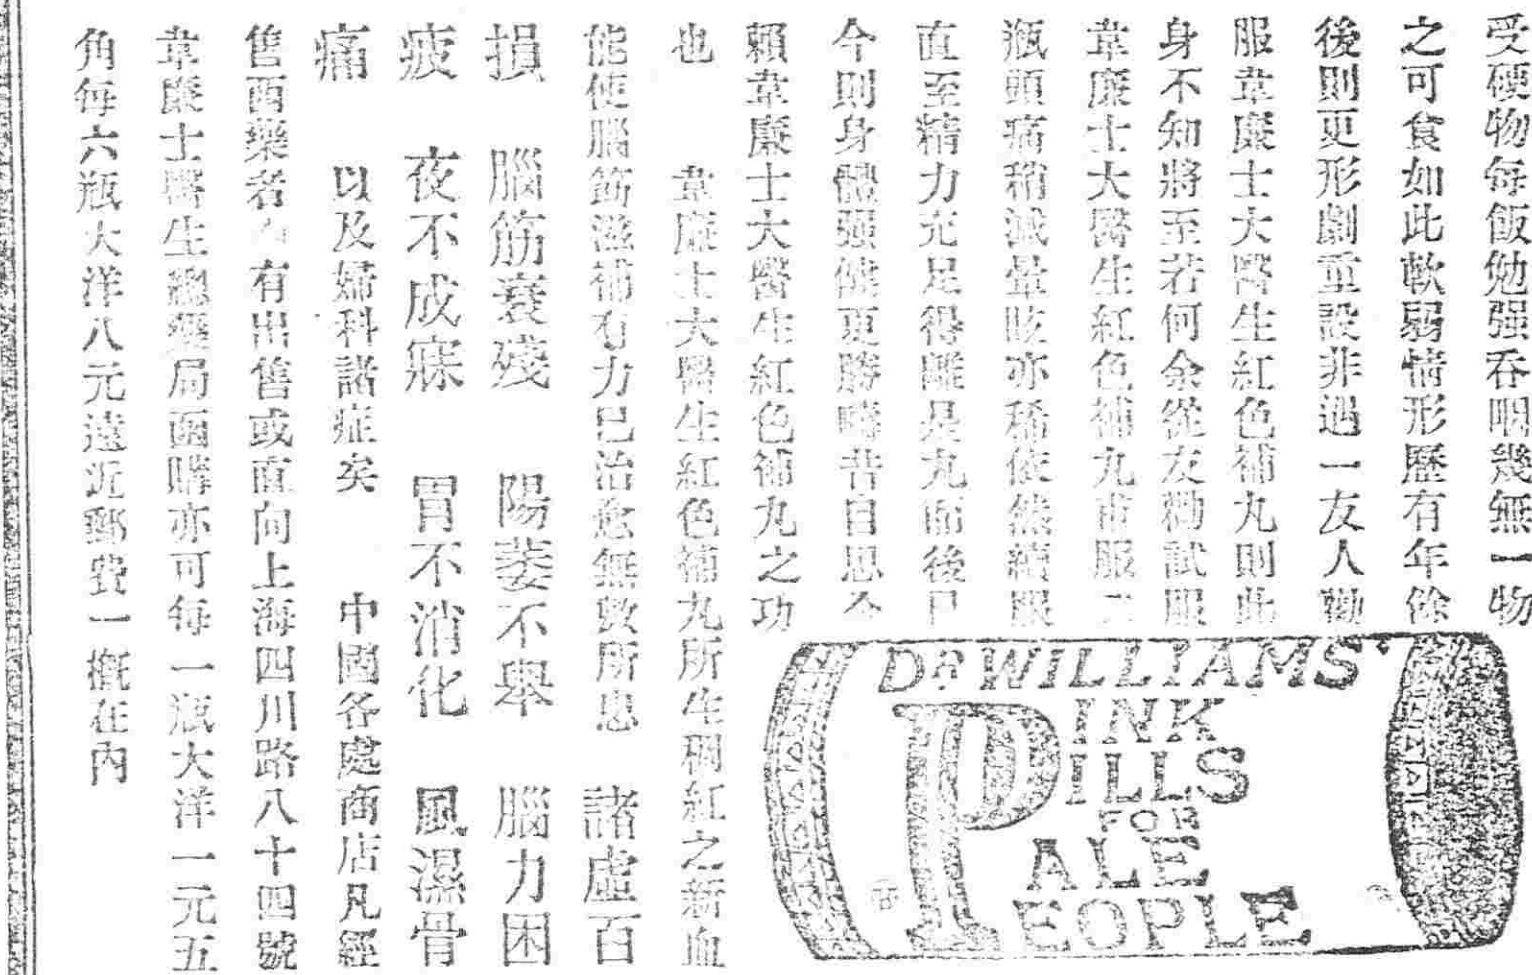 受硬物每飯勉强吞咽幾無一物
之可食如此軟弱情形歷有年餘
後則更形劇重設非遇一友人勸
服韋廉士大醫生紅色補丸則此
身不知將至若何余從友勸試服
韋廉士大醫生紅色補丸甫服二
瓶頭痛稍減暈眩亦稀依然續服
直至精力充足得離是丸而後已
今則身體强健更勝疇昔自思全
賴韋廉士大醫生紅色補丸之功
也 韋廉士大醫生紅色補丸所生稠紅之新血
能使腦筋滋補有力已治愈無數所患 諸虛百
損 腦筋衰殘 陽萎不舉 腦力困
疲 夜不成寐 胃不消化 風濕骨
痛 以及婦科諸症矣 中國各處商店凡經
售西藥者均有出售或直向上海四川路八十四號
韋廉士醫生總藥局函購亦可每一瓶大洋一元五
角每六瓶大洋八元遠近郵費一概在內
DR WILLIAMS'
PINK
PILLS
FOR
PALE
PEOPLE